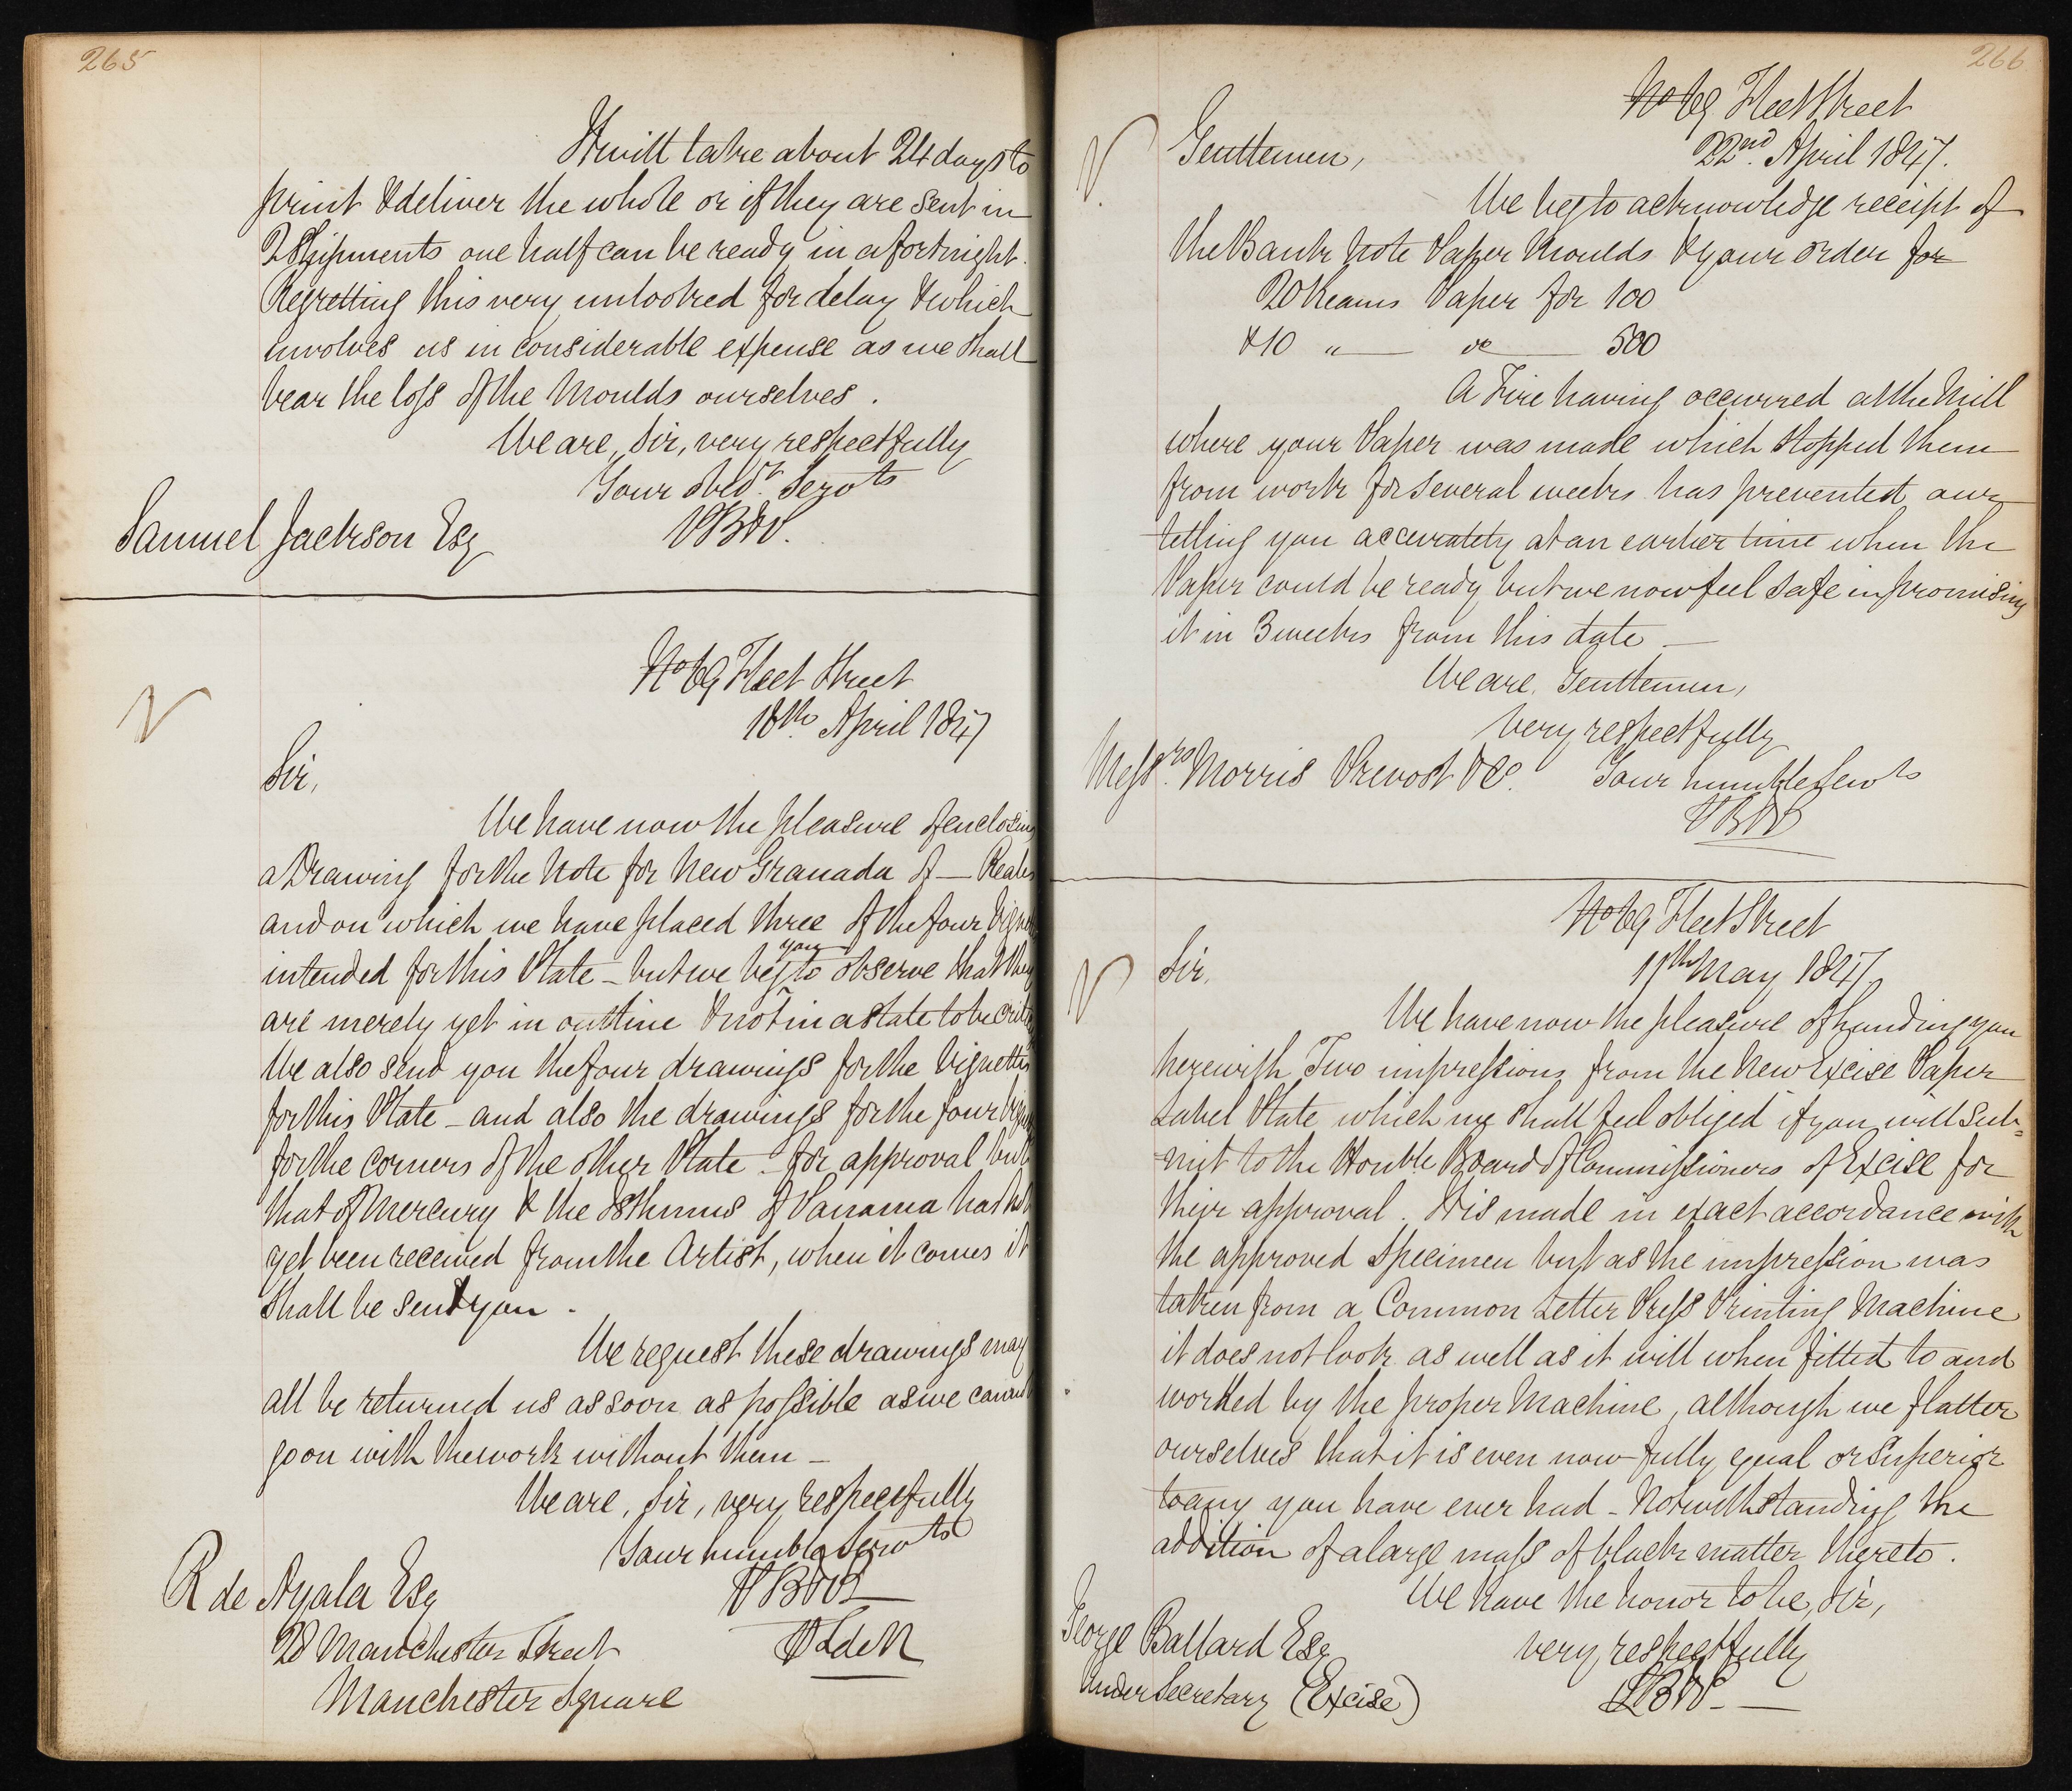 265
It will take about 24 days to
print & deliver the whole or if they are sent in
2 Shipments one half can be ready in a fortnight.
Regretting this very unlooked for delay & which
involves us in considerable expense as we shall
bear the loss of the Moulds ourselves.
We are, Sir, very respectfully
Your obedt. Servts
PB&P.
Samuel Jackson Esq
No 69 Fleet Street
18th. April 1847
Sir,
We have now the pleasure of enclosing
a Drawing for the Note for New Granada of — Reales
and on which we have placed three of the four
intended for this Plate - but we beg you to observe that they
are merely yet in outline & not in a state to be
We also send you the four drawings for the Vignettes
for this Plate - and also the drawings for the four
for the corners of the other Plate - for approval but
that of Mercury & the Isthmus of Panama has not
yet been received from the Artist, when it comes it
shall be sent you -
We request these drawings may
all be returned us as soon as possible as we cannot
go on with the work without them -
We are, Sir, very respectfully
Your humble Servts
PB&P
R de Ayala Esq
28 Manchester Street
Manchester Square
266
No 69 Fleet Street
22nd. April 1847.
Gentlemen,
We beg to acknowledge receipt of
the Bank Note Paper Moulds & your order for
20 Reams Paper for 100
& 10 " — do — 500
A Fire having occurred at the Mill
where your Paper was made which stopped them
from work for several weeks has prevented our
telling you accurately at an earlier time when the
Paper could be ready but we now feel safe in promising
it in 3 weeks from this date —
We are, Gentlemen,
very respectfully
Messrs. Morris Prevost & Co. Your humble Servts
PB&P
No 69 Fleet Street
11th May 1847
Sir,
We have now the pleasure of handing you
herewith Two impressions from the New Excise Paper
Label Plate which we shall feel obliged if you will sub=
mit to the Honble Board of Commissioners of Excise for
their approval. It is made in exact accordance with
the approved Specimen but as the impression was
taken from a Common Letter Press Printing Machine
it does not look as well as it will when fitted to and
worked by the proper Machine, although we flatter
ourselves that it is even now fully equal or superior
to any you have ever had - Notwithstanding the
addition of a large mass of black matter thereto.
We have the honor to be, Sir,
George Ballard Esq very respectfully
Under Secretary (Excise) PB&P. —